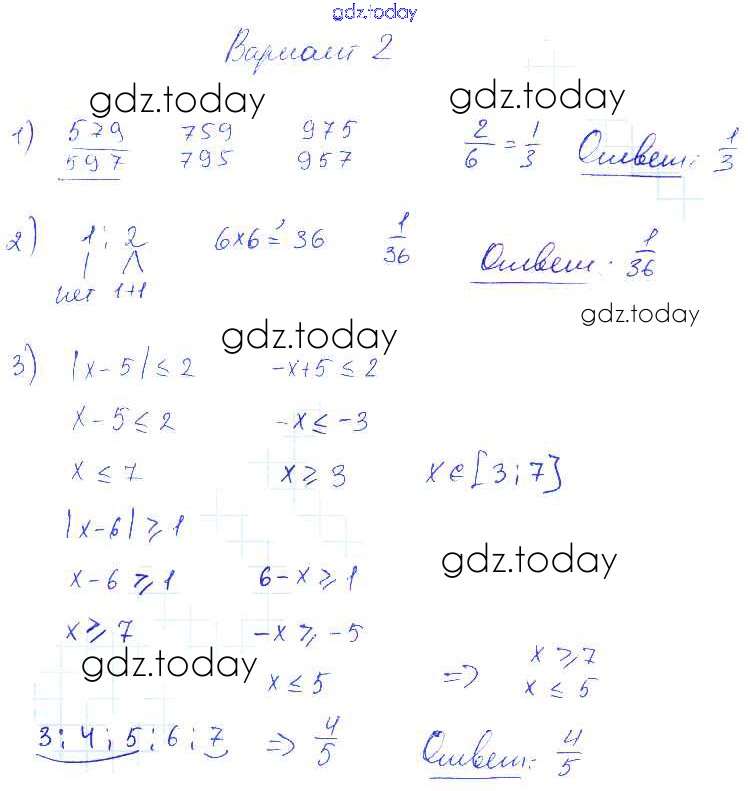 gdz.today
Вариант 2
gdz.today gdz.today
1) 579 759 975 2/6 = 1/3 Ответ: 1/3
597 795 957
2) 1; 2 6×6 = 36 1/36 Ответ: 1/36
нет 1+1
gdz.today
gdz.today
3) |x-5| ≤ 2 -x+5 ≤ 2
x-5 ≤ 2 -x ≤ -3
x ≤ 7 x ≥ 3 x ∈ [3;7]
|x-6| ≥ 1
gdz.today
x-6 ≥ 1 6-x ≥ 1
x ≥ 7 -x ≥ -5
gdz.today
x ≤ 5 => x ≥ 7
x ≤ 5
3; 4; 5; 6; 7 => 4/5 Ответ: 4/5